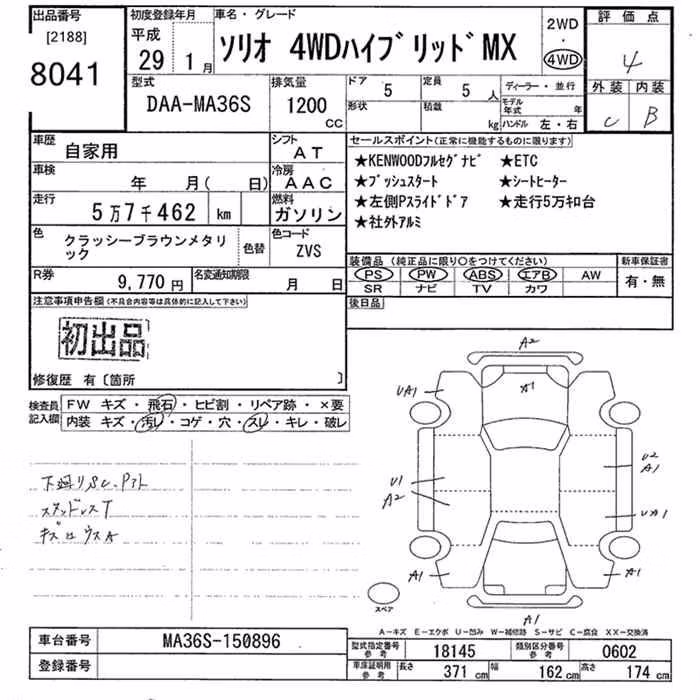 出品番号 初度登録年月 車名・グレード 評価点
[2188] 平成 ソリオ 4WDハイブリッドMX 2WD
8041 29 1月 ・ 4WD 4
型式 排気量 ドア 5 定員 5人 ディーラー・並行 外装 内装
DAA-MA36S 1200 CC 形状 積載 kg モデル年式 年 C B
ハンドル 左・右
車歴 自家用 シフト AT セールスポイント(正常に機能するものに限ります)
車検 年 月( 日) 冷房 AAC ★KENWOODフルセグナビ ★ETC
走行 5万7千462 km 燃料 ガソリン ★プッシュスタート ★シートヒーター
★左側Pスライドドア ★走行5万キロ台
★社外アルミ
色 クラッシーブラウンメタリック 色替 色コード ZVS
装備品(純正品に限り○をつけてください) 新車保証書
PS PW ABS エアB AW 有・無
SR ナビ TV カワ
R券 9,770円 名変通知期限 月 日
後日品
注意事項申告欄(不具合内容等は具体的に記入して下さい)
初出品
修復歴 有〔箇所 〕
検査員記入欄 FW キズ・飛石・ヒビ割・リペア跡・×要
内装 キズ・汚レ・コゲ・穴・スレ・キレ・破レ
下廻りSU.Pアト
スタッドレスT
A2
UA1 A1
U1 U2
A2 A1
UA1
A1 A1
A1
スペア
A-キズ E-エクボ U-凹み W-補修跡 S-サビ C-腐食 XX-交換済
車台番号 MA36S-150896
登録番号
型式指定番号 参考 18145 類別区分番号 参考 0602
車庫証明用 参考 長さ 371 cm 幅 162 cm 高さ 174 cm